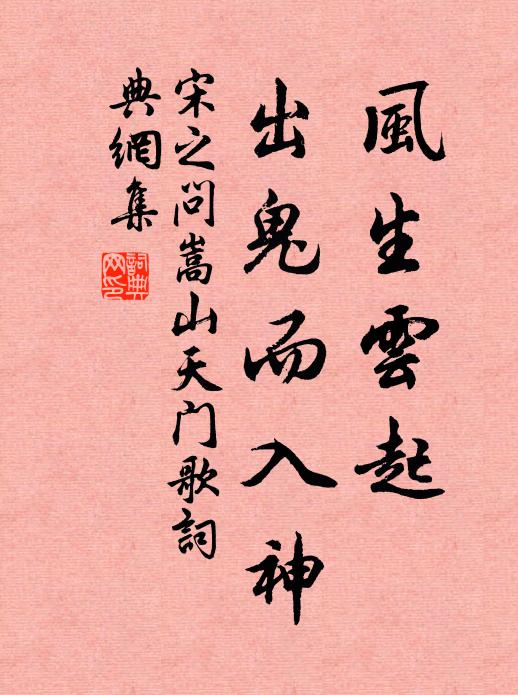 風生雲起
出鬼而入神
宋之问嵩山天门歌詞
典網集
詞典
网印